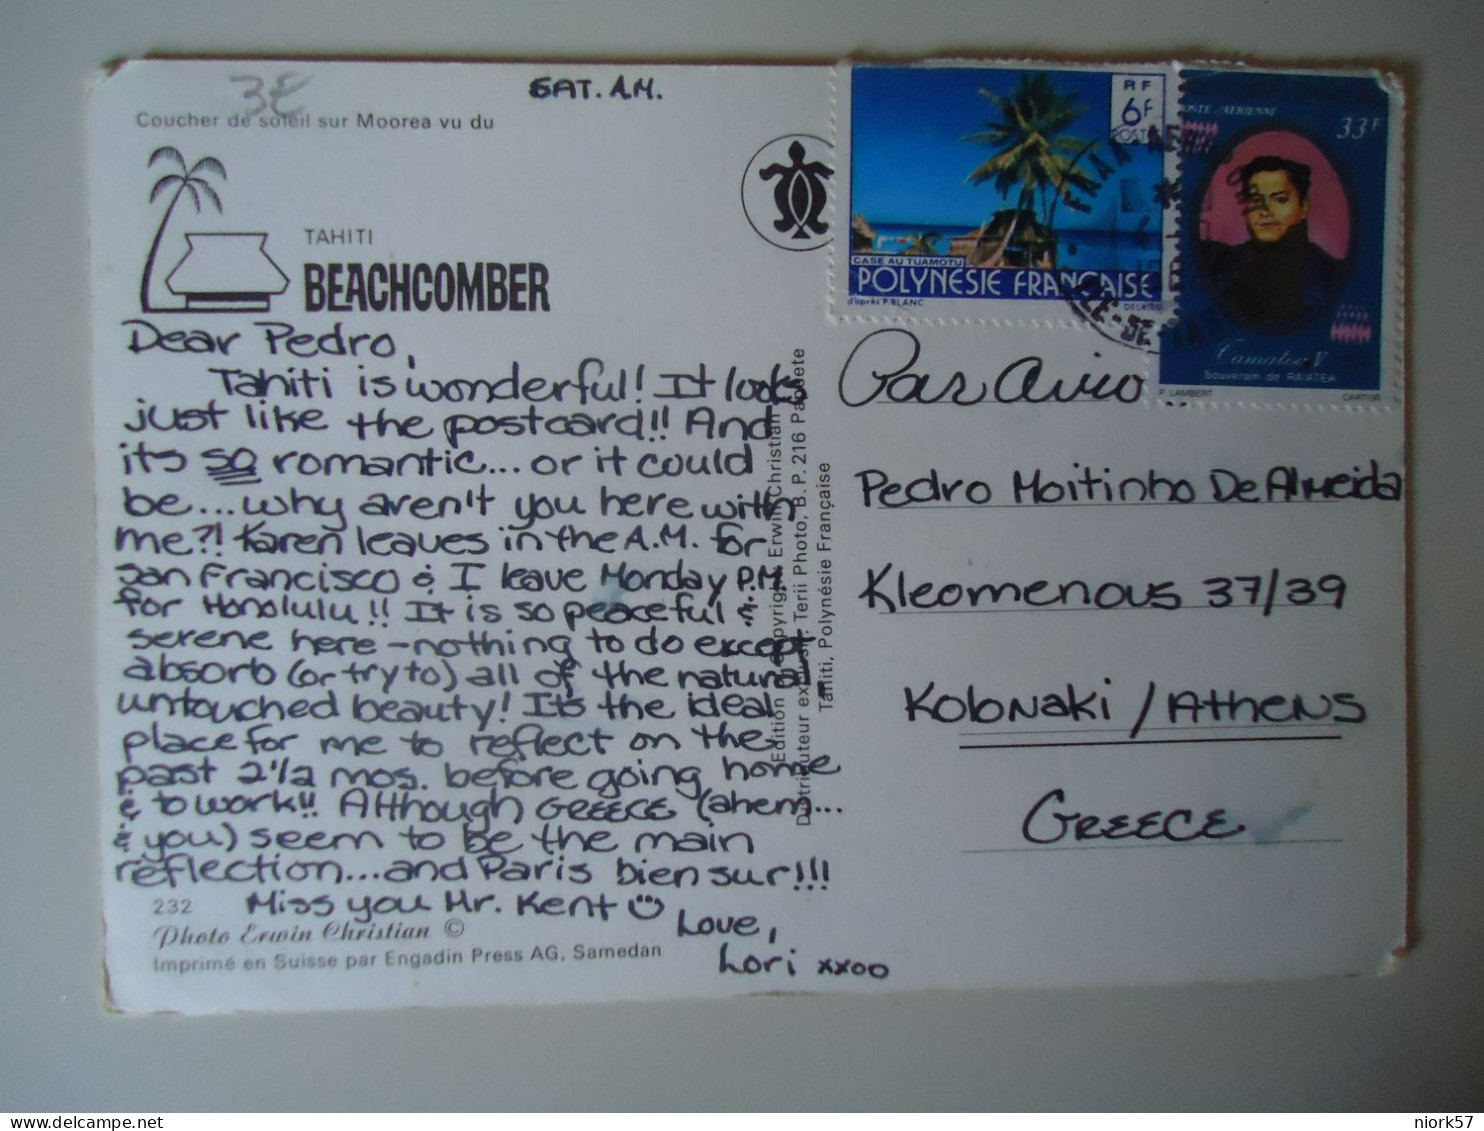 SAT. A.M.
3€
Coucher de soleil sur Moorea vu du
TAHITI
BEACHCOMBER
Dear Pedro,
Tahiti is wonderful! It looks
just like the postcard!! And
its so romantic... or it could
be... why aren't you here with
me?! Karen leaves in the A.M. for
San Francisco & I leave Monday P.M.
for Honolulu!! It is so peaceful &
serene here - nothing to do except
absorb (or try to) all of the natural
untouched beauty! It's the ideal
place for me to reflect on the
past 2 1/2 mos. before going home
& to work!! Although GREECE (ahem...
& you) seem to be the main
reflection... and Paris bien sur!!!
Miss you Mr. Kent
Love,
Lori xxoo
232
Photo Erwin Christian ©
Imprimé en Suisse par Engadin Press AG, Samedan
Edition Copyright: Erwin Christian
Distributeur exclusif: Terii Photo, B. P. 216 Papeete
Tahiti, Polynésie Française
RF
6F
POSTES
CASE AU TUAMOTU
POLYNESIE FRANÇAISE
d'après P. BLANC
DELRIEU
POSTE AERIENNE
33F
Tamatoa V
Souverain de RAIATEA
P. LAMBERT
CARTOR
FAAA
Par Avion
Pedro Moitinho De Almeida
Kleomenous 37/39
Kolonaki / Athens
GREECE
niork57